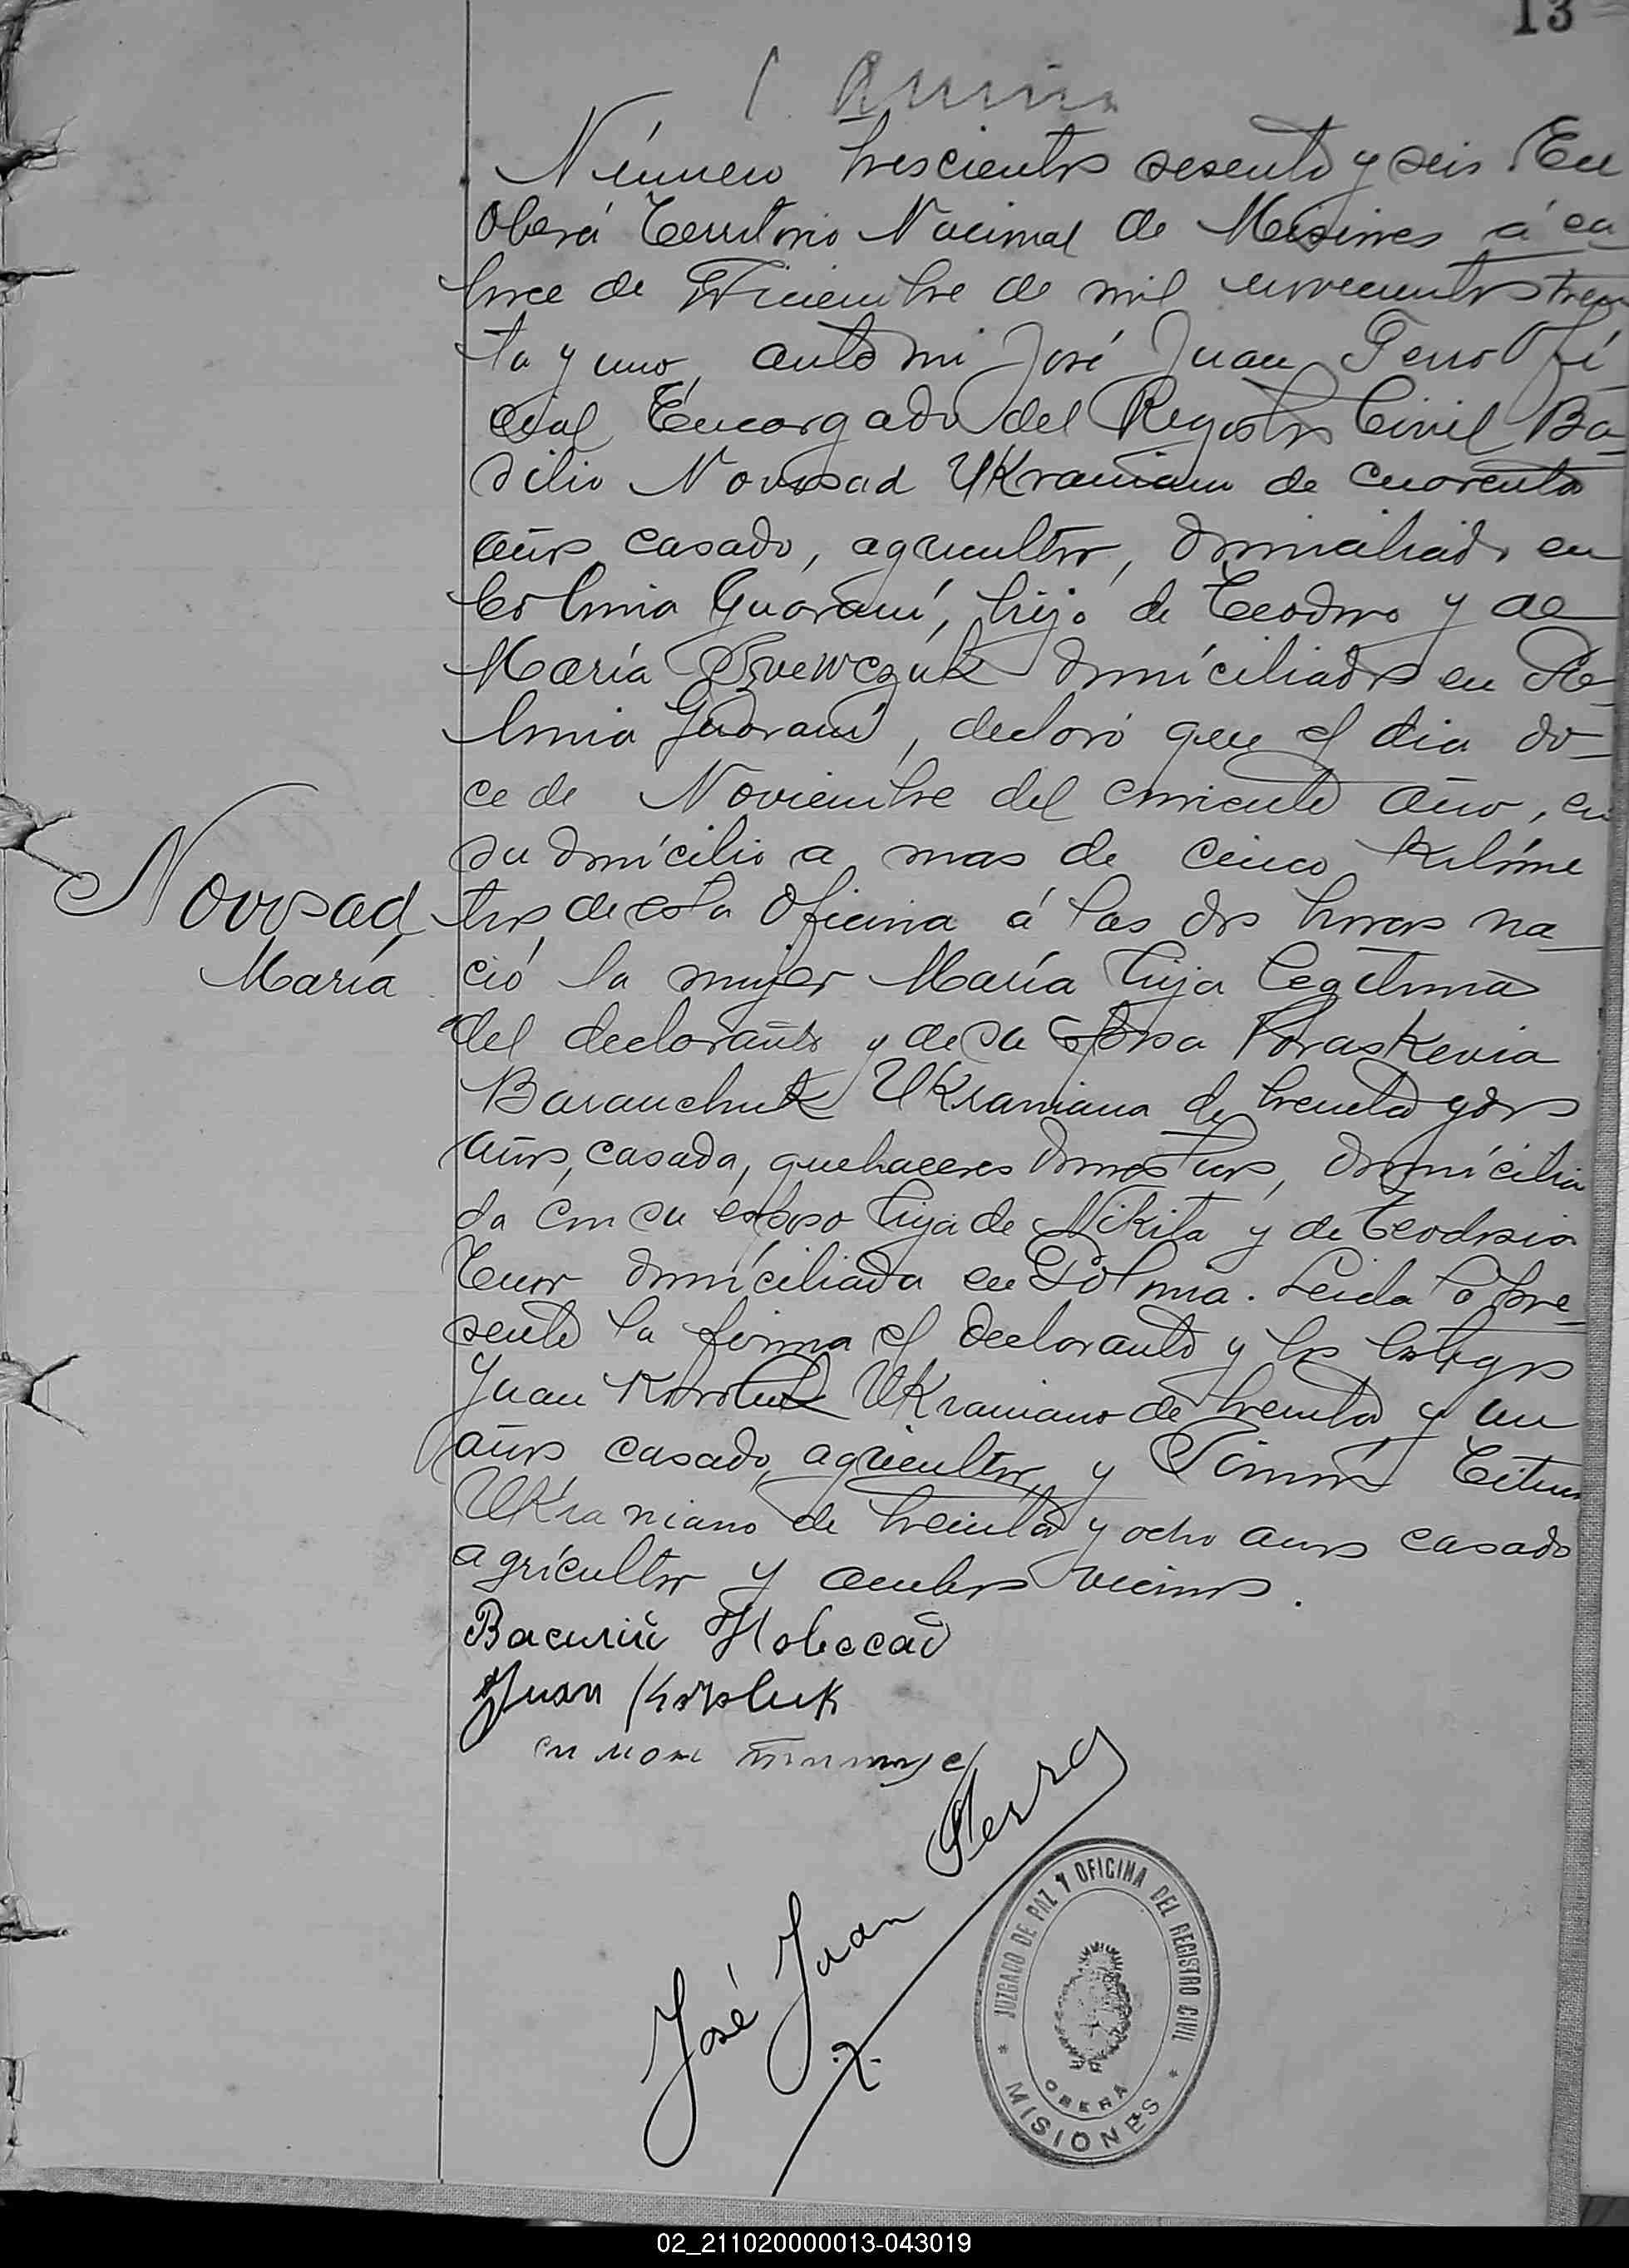 13
Número trescientos sesenta y seis. En
Oberá Territorio Nacional de Misiones á ca
torce de Diciembre de mil novecientos trein
ta y uno, ante mi José Juan Perro Ofi
cial Encargado del Registro Civil Ba-
silio Novosad Ukraniano de cuarenta
años casado, agricultor, domiciliado en
Colonia Guaraní, hijo de Teodoro y de
María domiciliados en Co-
lonia Guaraní, declaró que el dia do-
ce de Noviembre del corriente año, en
su domícilio a mas de cinco kilóme
Novosad
María
tros de esta Oficina á las dos horas na-
ció la mujer María hija legitima
del declarante y de su esposa Paraskevia
Baranchuk Ukraniana de treinta y dos
años, casada, quehaceres domesticos, domícilia
da con su esposo hija de Nikita y de Teodosia
domíciliada en Polonia. Leida la pre-
sente la firma el declarante y los testigos
Juan Koroluk Ukraniano de treinta y un
años casado, agricultor y
Ukraniano de treinta y ocho años casado
agrícultor y ambos vecinos.
Василий Новосад
Juan Koroluk
José Juan Perro
JUZGADO DE PAZ Y OFICINA DEL REGISTRO CIVIL
OBERA
* MISIONES *
02_211020000013-043019